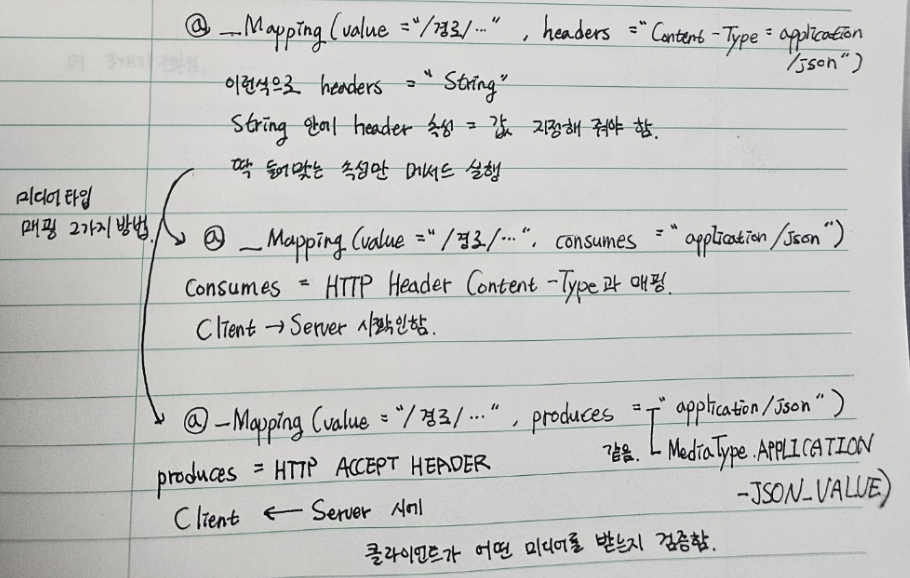 @ _Mapping (value = "/경로/…" , headers = "Content-Type = application
/json")
이런식으로 headers = "String"
String 안에 header 속성 = 값 지정해 줘야 함.
딱 들어맞는 속성만 메서드 실행
미디어타입
매핑 2가지 방법.
@ _Mapping (value = "/경로/…", consumes = "application/json")
Consumes = HTTP Header Content-Type과 매핑.
Client → Server 시 확인함.
@ _Mapping (value = "/경로/…" , produces = "application/json")
같음. MediaType.APPLICATION
_JSON_VALUE)
produces = HTTP ACCEPT HEADER
Client ← Server 시에
클라이언트가 어떤 미디어를 받는지 검증함.